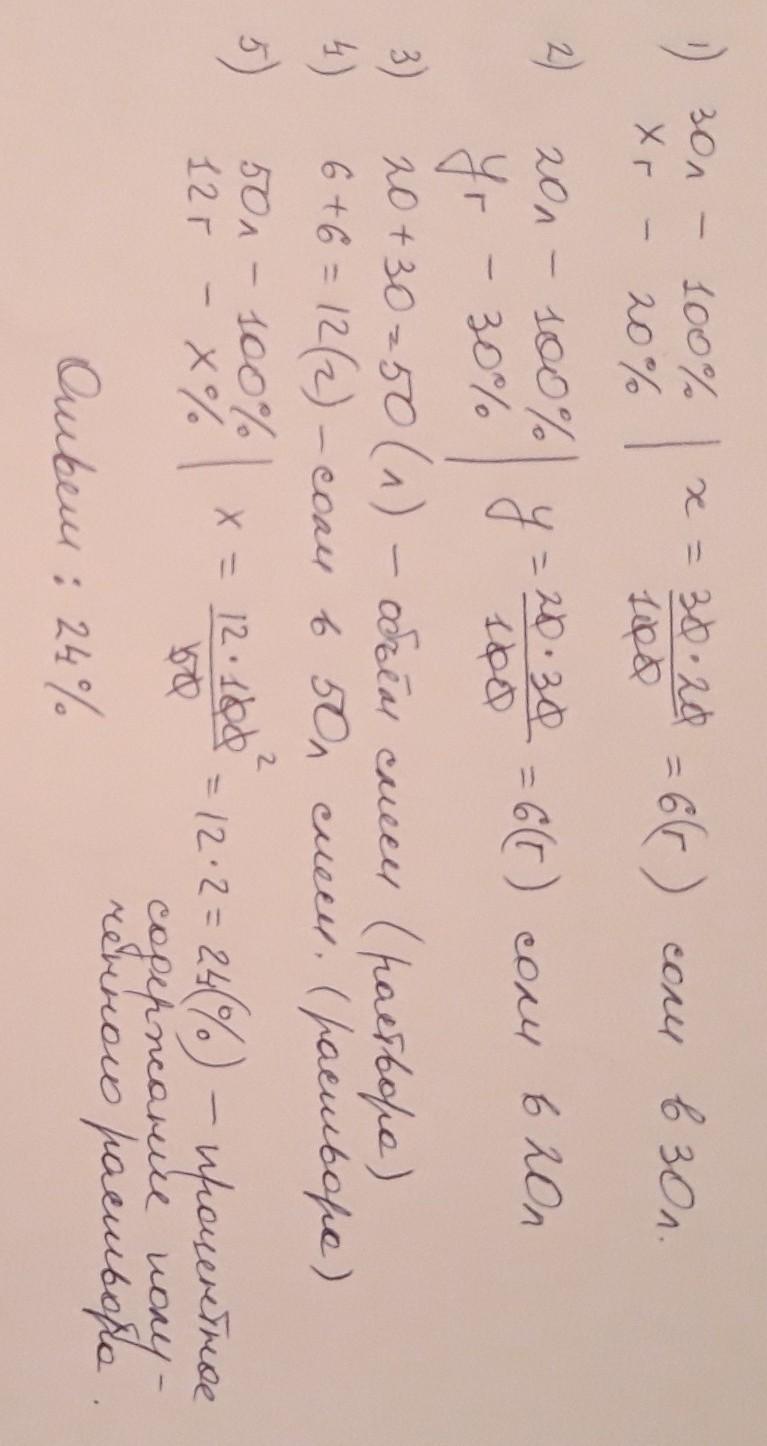 1) 30л – 100% | x = 30·20
xг – 20% | 100 = 6(г) соли в 30л.
2) 20л – 100% | y = 20·30
yг – 30% | 100 = 6(г) соли в 20л
3) 20+30=50(л) – объём смеси (раствора)
4) 6+6=12(г) – соли в 50л смеси. (раствора)
5) 50л – 100% | x = 12·100 2
12г – x% | 50 = 12·2=24(%) – процентное
содержание полу-
ченного раствора.
Ответ: 24%